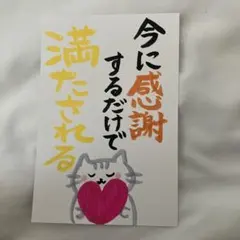 今に感謝
するだけで
満たされる